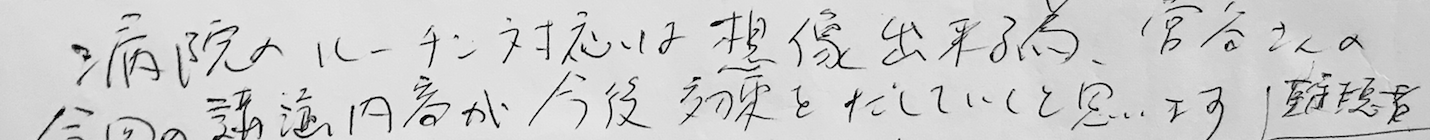 病院のルーチン対応は想像出来る為、菅谷さんの
今回の講演内容が今後効果をだしていくと思います 難聴者